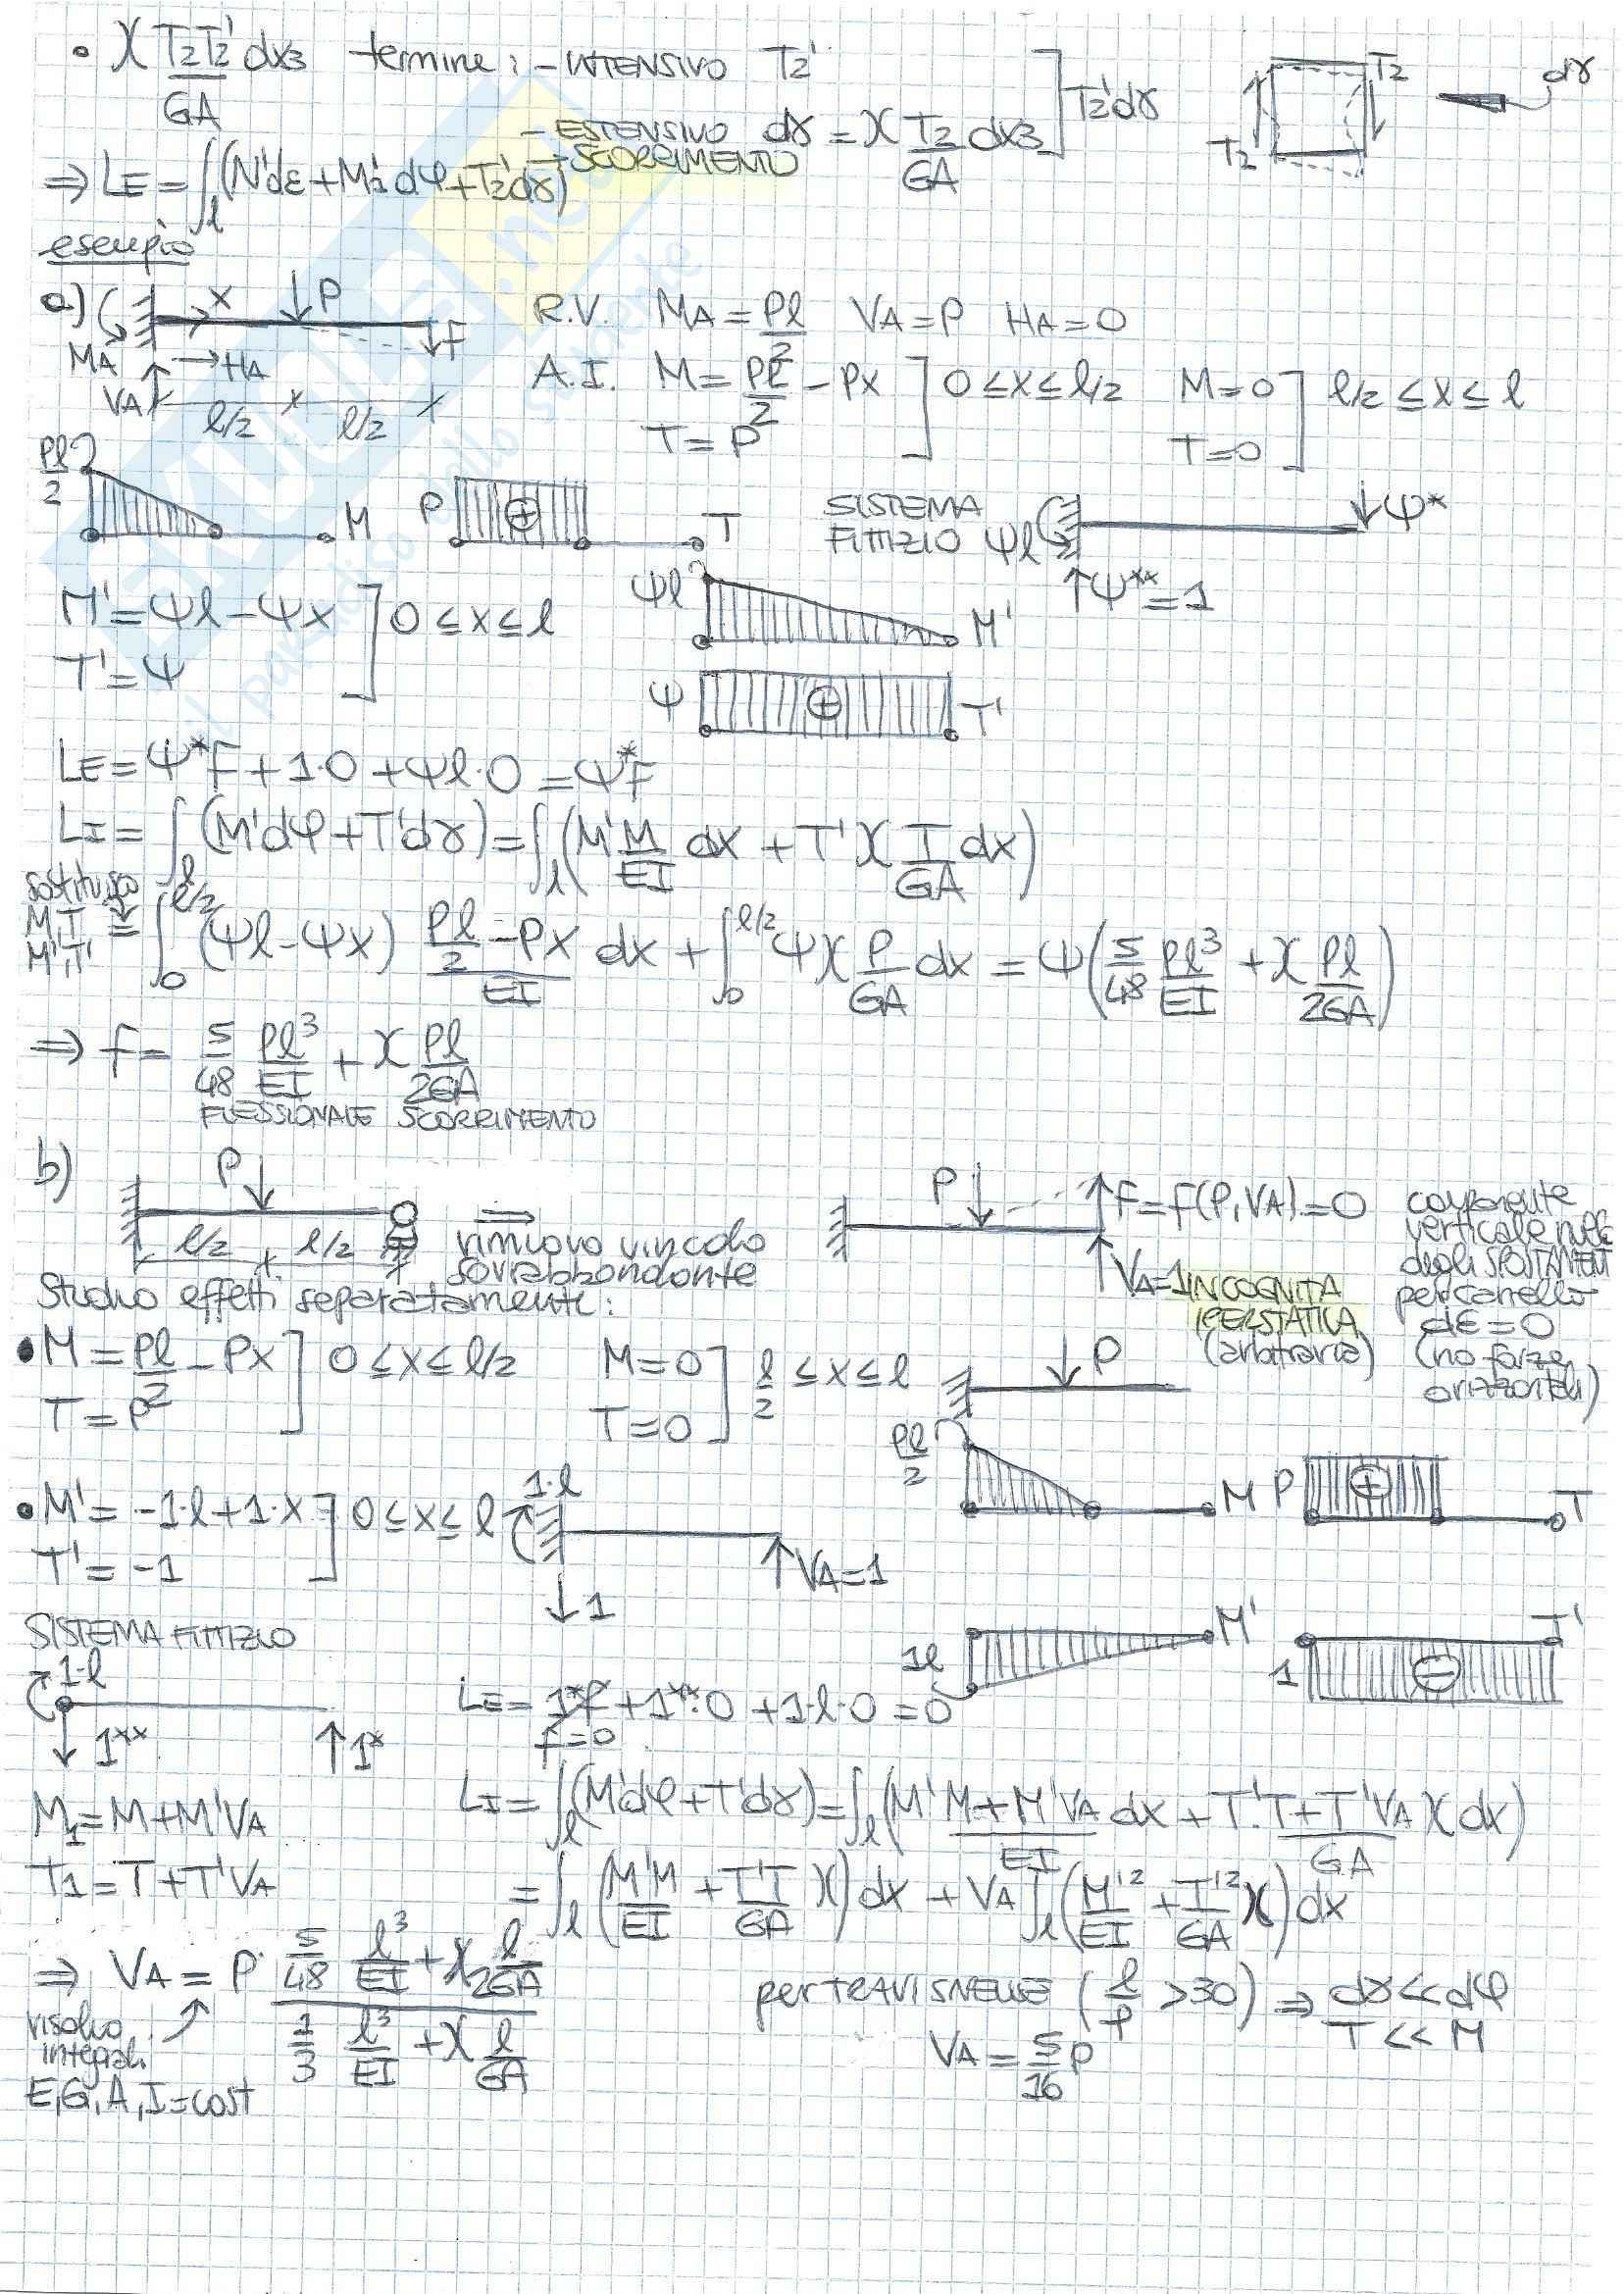 • χ T₂T₂'/GA dx₃ termine: - INTENSIVO T₂'
- ESTENSIVO dγ = χ T₂/GA dx₃ ] T₂'dγ
→ SCORRIMENTO
T₂ T₂ dγ
⇒ LE = ∫ₗ (N'dε + M₁'dφ + T₂'dγ)
esempio
a) X P F
MA HA VA l/2 l/2
R.V. MA = Pl/2 VA = P HA = 0
A.I. M = Pl/2 - Px ] 0 ≤ x ≤ l/2 M = 0 ] l/2 ≤ x ≤ l
T = P T = 0
Pl/2 M P ⊕ T
SISTEMA FITTIZIO Ψl Ψ*
Ψ** = 1
M' = Ψl - Ψx ] 0 ≤ x ≤ l
T' = Ψ
Ψl M'
Ψ ⊕ T'
LE = Ψ*F + 1·0 + Ψl·0 = Ψ*F
LI = ∫ₗ (M'dφ + T'dγ) = ∫ₗ (M' M/EI dx + T' χ T/GA dx)
sostituisco M,T M',T'
= ∫₀^l/2 (Ψl - Ψx) (Pl/2 - Px)/EI dx + ∫₀^l/2 Ψ χ P/GA dx = Ψ (5/48 Pl³/EI + χ Pl/2GA)
⇒ f = 5/48 Pl³/EI + χ Pl/2GA
FLESSIONALE SCORRIMENTO
b) P l/2 l/2
⇒ rimuovo vincolo sovrabbondante
P F = f(P, VA) = 0
VA = 1 INCOGNITA IPERSTATICA (arbitraria)
componente verticale nulla degli SPOSTAMENTI per carrello
dε = 0
(no forze orizzontali)
Studio effetti separatamente:
• M = Pl/2 - Px ] 0 ≤ x ≤ l/2 M = 0 ] l/2 ≤ x ≤ l
T = P T = 0
P
Pl/2 M P ⊕ T
• M' = -1·l + 1·x ] 0 ≤ x ≤ l
T' = -1
1·l VA = 1
1
1l M' 1 ⊖ T'
SISTEMA FITTIZIO
1·l 1** 1*
LE = 1*f + 1**·0 + 1·l·0 = 0
f = 0
M₁ = M + M'VA
T₁ = T + T'VA
LI = ∫ₗ (M'dφ + T'dγ) = ∫ₗ (M' (M + M'VA)/EI dx + T'·(T + T'VA)/GA χ dx)
= ∫ₗ (M'M/EI + T'T/GA χ) dx + VA ∫ₗ (M'²/EI + T'²/GA χ) dx
⇒ VA = P · (5/48 l³/EI + χ l/2GA) / (1/3 l³/EI + χ l/GA)
risolvo integrali
E, G, A, I = cost
per TRAVI SNELLE (l/ρ > 30) ⇒ dγ << dφ
T << M
VA = 5/16 P